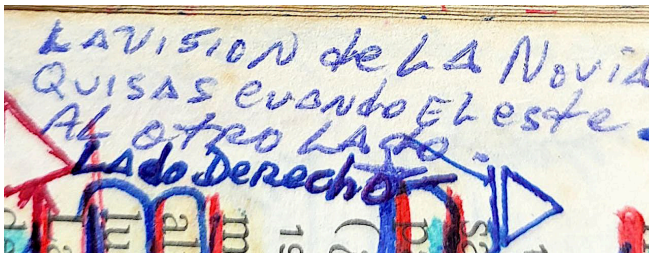 LA VISION de LA NOVIA
QUISAS CUANDO EL ESTE
AL OTRO LADO.
LADO DERECHO